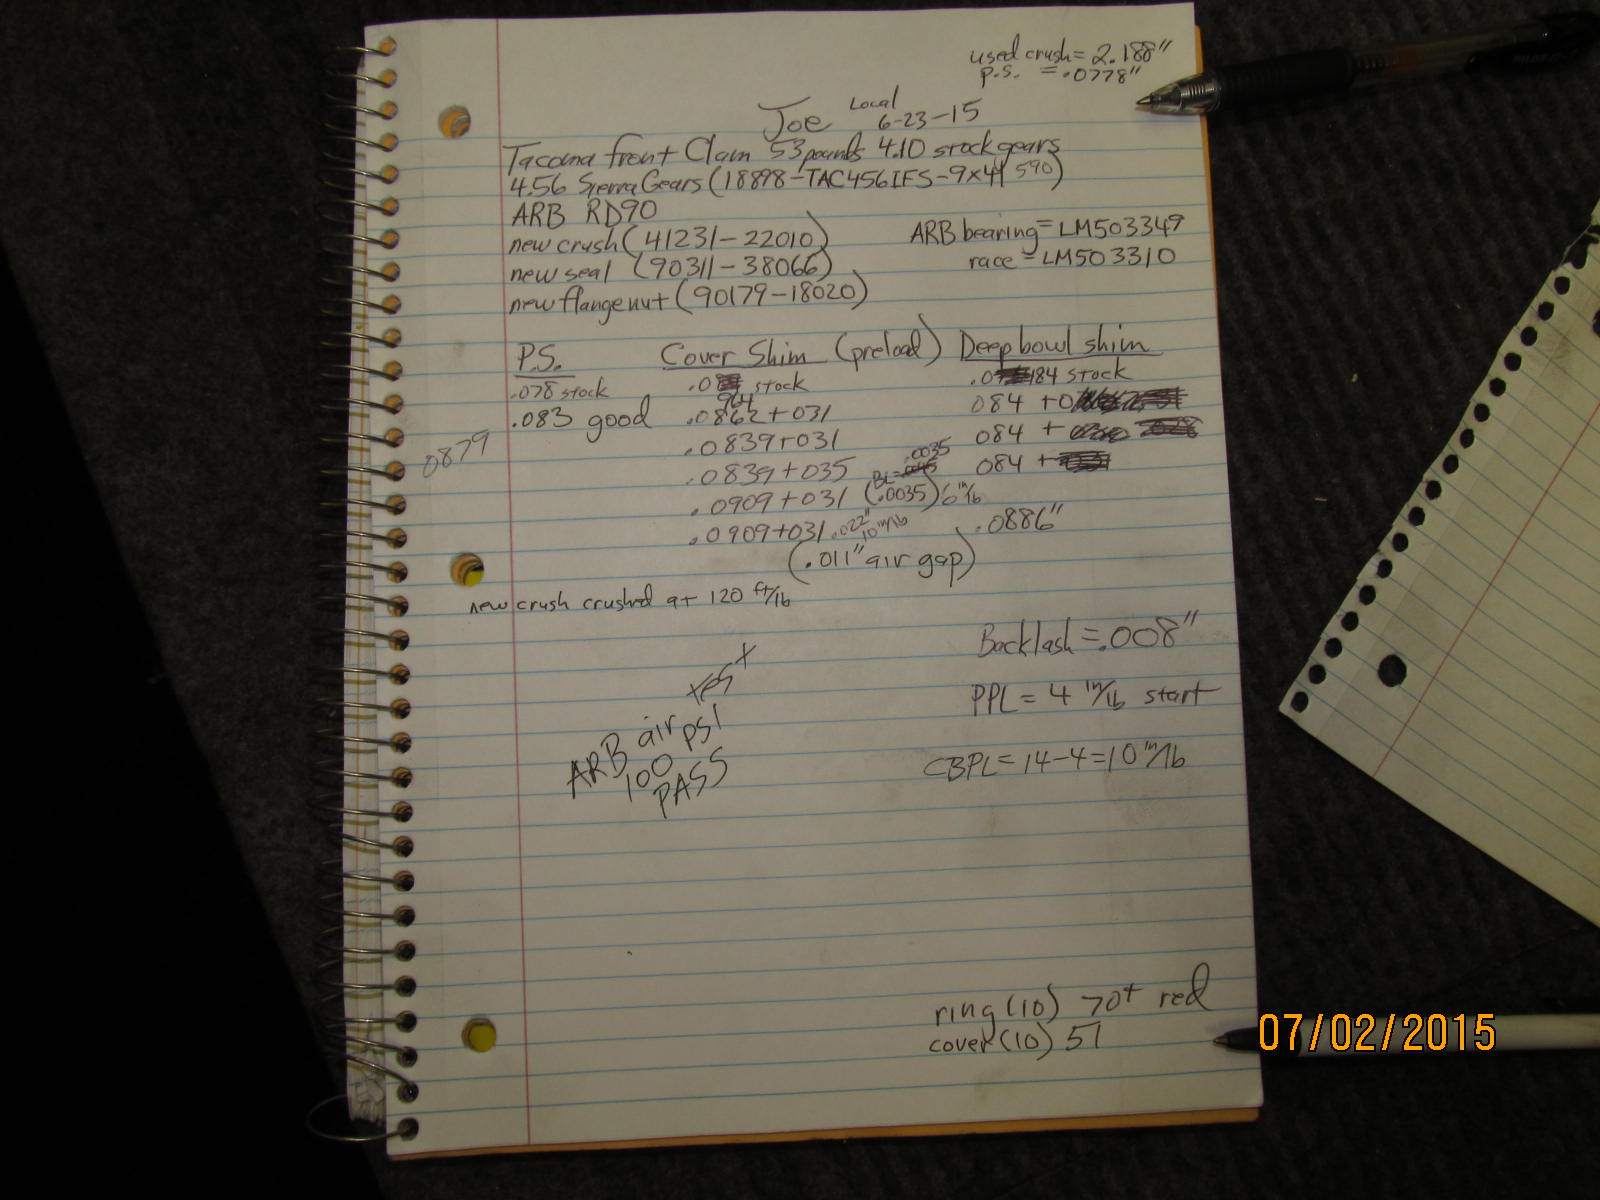 used crush = 2.188"
p.s. = .0778"
Joe Local 6-23-15
Tacoma front Clam 53 pounds 4.10 stock gears
4.56 Sierra Gears (18898-TAC456IFS-9x41 590)
ARB RD90
new crush (41231-22010) ARB bearing = LM503349
new seal (90311-38066) race = LM503310
new flange nut (90179-18020)
P.S. Cover Shim (preload) Deep bowl shim
.078 stock .08 stock .0 184 stock
904
.083 good .0862+031 084 +0
.0839+031 084 +
0879
.0035
.0839+035 BL= 084 +
.0909+031 (.0035) 6 in/lb
.0909+031 .022" 10 in/lb .0886"
(.011" air gap)
new crush crushed at 120 ft/lb
Backlash = .008"
test
PPL = 4 in/lb start
ARB air psi
100
PASS
CBPL = 14-4=10 in/lb
ring (10) 70+ red
cover (10) 51
PILOT
07/02/2015